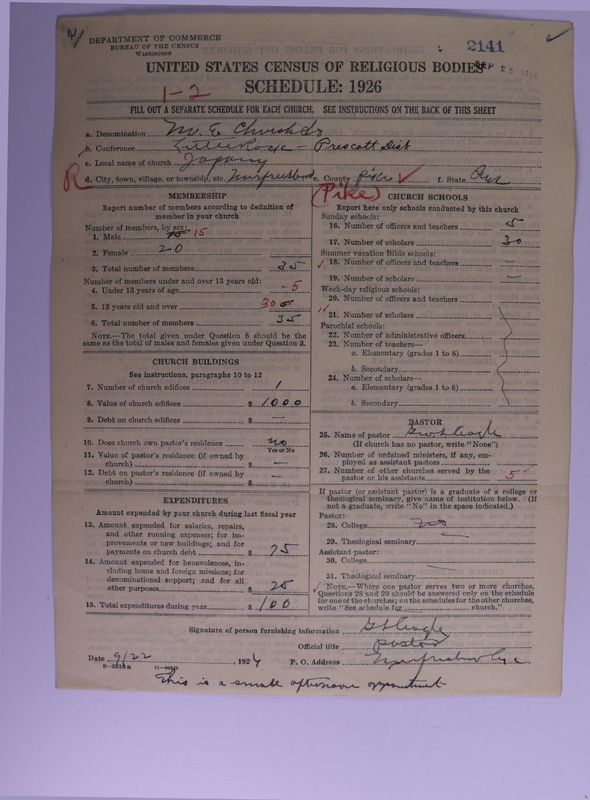 DEPARTMENT OF COMMERCE
BUREAU OF THE CENSUS
WASHINGTON
2141
UNITED STATES CENSUS OF RELIGIOUS BODIES
SEP 25
SCHEDULE: 1926
1-2
FILL OUT A SEPARATE SCHEDULE FOR EACH CHURCH. SEE INSTRUCTIONS ON THE BACK OF THIS SHEET
a. Denomination M. E. Church So
b. Conference Little Rock - Prescott Dist
c. Local name of church
R
d. City, town, village, or township, etc. Murfreesboro e. County Pike f. State Ark
(Pike)
MEMBERSHIP
Report number of members according to definition of member in your church
Number of members, by sex:
1. Male 15 15
2. Female 20
3. Total number of members 35
Number of members under and over 13 years old:
4. Under 13 years of age 5
5. 13 years old and over 30
6. Total number of members 35
NOTE.—The total given under Question 6 should be the same as the total of males and females given under Question 3.
CHURCH BUILDINGS
See instructions, paragraphs 10 to 12
7. Number of church edifices 1
8. Value of church edifices $ 1000
9. Debt on church edifices $ —
10. Does church own pastor's residence no
Yes or No
11. Value of pastor's residence (if owned by church) $ —
12. Debt on pastor's residence (if owned by church) $ —
EXPENDITURES
Amount expended by your church during last fiscal year
13. Amount expended for salaries, repairs, and other running expenses; for improvements or new buildings; and for payments on church debt $ 75
14. Amount expended for benevolences, including home and foreign missions; for denominational support; and for all other purposes $ 25
15. Total expenditures during year $ 100
CHURCH SCHOOLS
Report here only schools conducted by this church
Sunday schools:
16. Number of officers and teachers 5
17. Number of scholars 30
Summer vacation Bible schools:
18. Number of officers and teachers —
19. Number of scholars —
Week-day religious schools:
20. Number of officers and teachers
21. Number of scholars
Parochial schools:
22. Number of administrative officers
23. Number of teachers—
a. Elementary (grades 1 to 8)
b. Secondary
24. Number of scholars—
a. Elementary (grades 1 to 8)
b. Secondary
PASTOR
25. Name of pastor
(If church has no pastor, write "None")
26. Number of ordained ministers, if any, employed as assistant pastors
27. Number of other churches served by the pastor or his assistants 5
If pastor (or assistant pastor) is a graduate of a college or theological seminary, give name of institution below. (If not a graduate, write "No" in the space indicated.)
Pastor:
28. College no
29. Theological seminary —
Assistant pastor:
30. College —
31. Theological seminary
NOTE.—Where one pastor serves two or more churches, Questions 28 and 29 should be answered only on the schedule for one of the churches; on the schedules for the other churches, write "See schedule for church."
Signature of person furnishing information
Official title pastor
Date 9/22, 1926 P. O. Address Murfreesboro
This is a small afternoon appointment